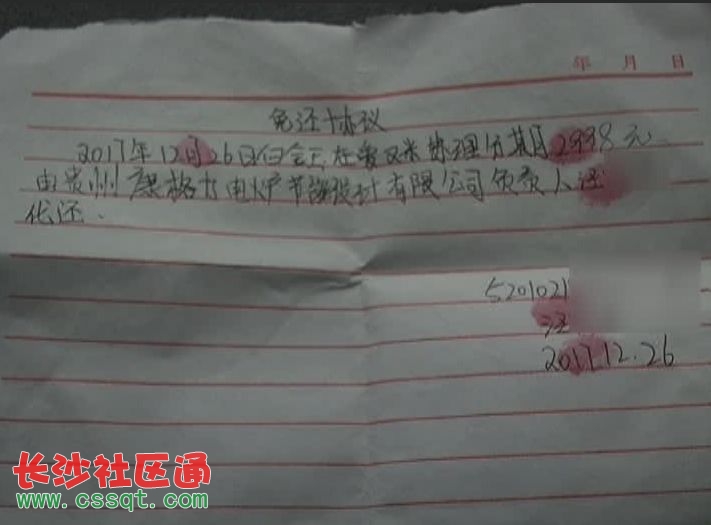 年 月 日
免还协议
2017年12月26日 在 办理分期2998元
由贵州 电炉节能设计有限公司负责人汪
代还.
5201021
汪
2017.12.26
长沙社区通
www.cssqt.com